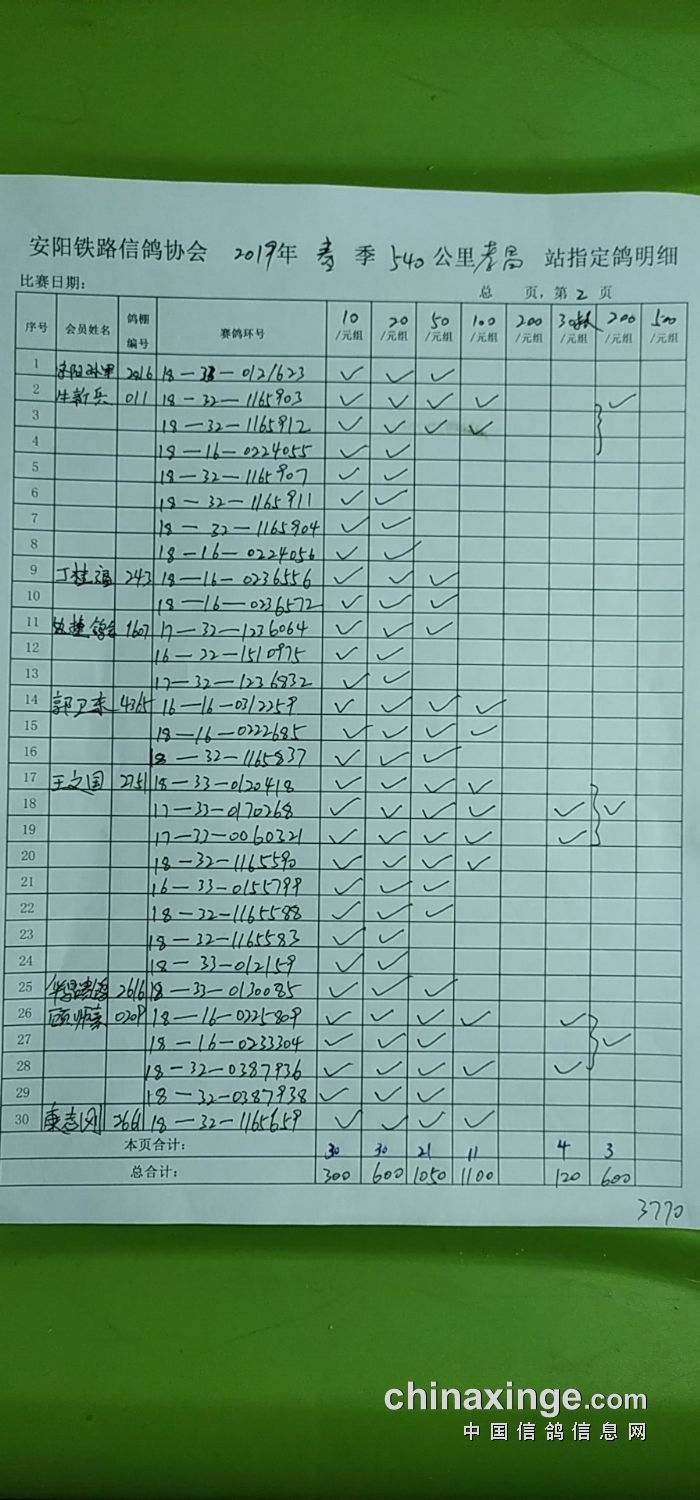 安阳铁路信鸽协会 2019年 春 季 540 公里孝昌 站指定鸽明细
比赛日期： 总 页，第 2 页
序号 会员姓名 鸽棚编号 赛鸽环号 10/元组 20/元组 50/元组 100/元组 200/元组 30 /元组 200/元组 500/元组
1 2816 18-33-0121623 ✓ ✓ ✓
2 牛新兵 011 18-32-1165903 ✓ ✓ ✓ ✓ ✓
3 18-32-1165912 ✓ ✓ ✓ ✓
4 18-16-0224055 ✓ ✓
5 18-32-1165907 ✓ ✓
6 18-32-1165911 ✓ ✓
7 18-32-1165904 ✓ ✓
8 18-16-0224056 ✓ ✓
9 丁桂福 243 18-16-0236556 ✓ ✓ ✓
10 18-16-0236572 ✓ ✓ ✓
11 1607 17-32-1236064 ✓ ✓ ✓
12 16-22-1510975 ✓ ✓
13 17-32-1236832 ✓ ✓
14 郭卫东 4365 16-16-0312259 ✓ ✓ ✓ ✓
15 18-16-0222685 ✓ ✓ ✓ ✓
16 18-32-1165837 ✓ ✓ ✓
17 王文国 2751 18-33-0120418 ✓ ✓ ✓ ✓
18 17-33-0170268 ✓ ✓ ✓ ✓ ✓ ✓
19 17-33-0060321 ✓ ✓ ✓ ✓ ✓
20 18-32-1165590 ✓ ✓ ✓ ✓
21 16-33-0155799 ✓ ✓ ✓
22 18-32-1165588 ✓ ✓ ✓
23 18-32-1165583 ✓ ✓
24 18-33-012159 ✓ ✓
25 2616 18-33-0130085 ✓ ✓ ✓
26 0209 18-16-0225809 ✓ ✓ ✓ ✓ ✓
27 18-16-0233304 ✓ ✓ ✓ ✓
28 18-32-0387936 ✓ ✓ ✓ ✓ ✓
29 18-32-0387938 ✓ ✓ ✓
30 康志刚 2661 18-32-1165659 ✓ ✓ ✓ ✓
本页合计： 30 30 21 11 4 3
总合计： 300 600 1050 1100 120 600
3770
chinaxinge.com
中国信鸽信息网